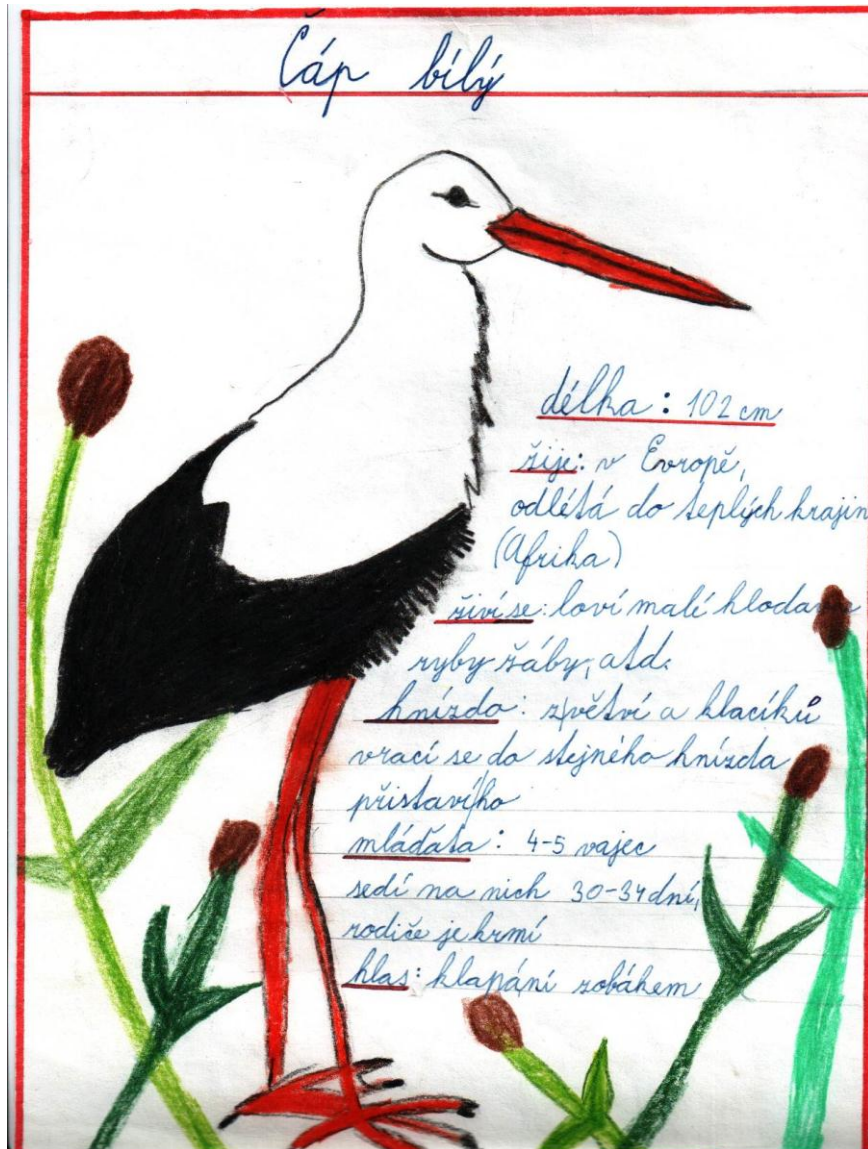 Čáp bílý
délka: 102 cm
žije: v Evropě,
odlétá do teplých krajin
(Afrika)
živí se: loví malé hlodavce
ryby žáby, atd.
hnízdo: z větví a klacíků
vrací se do stejného hnízda
přistaví ho
mláďata: 4-5 vajec
sedí na nich 30-34 dní,
rodiče je krmí
hlas: klapání zobákem